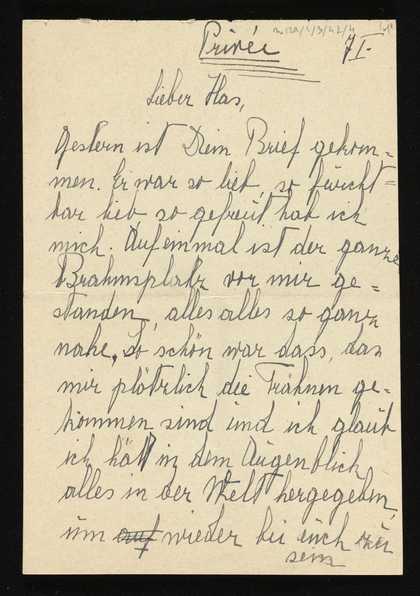 Privée
7I.
Lieber Has,
Gestern ist Dein Brief gekom=
men. Er war so lieb, so furcht=
bar lieb so gefreut hab ich
mich. Auf einmal ist der ganze
Brahmsplatz vor mir ge=
standen, alles alles so ganz
nahe. So schön war dass, das
mir plötzlich die Trähnen ge-
kommen sind und ich glaub
ich hätt in dem Augenblick
alles in der Welt hergegeben,
um auf wieder bei euch zu
sein